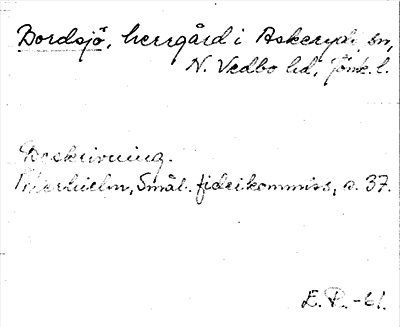 Bordsjö, herrgård i Askeryds sn,
N. Vedbo hd, Jönk. l.
Beskrivning.
Silferhielm, Smål. fideikommiss, s. 37.
E. P. -61.